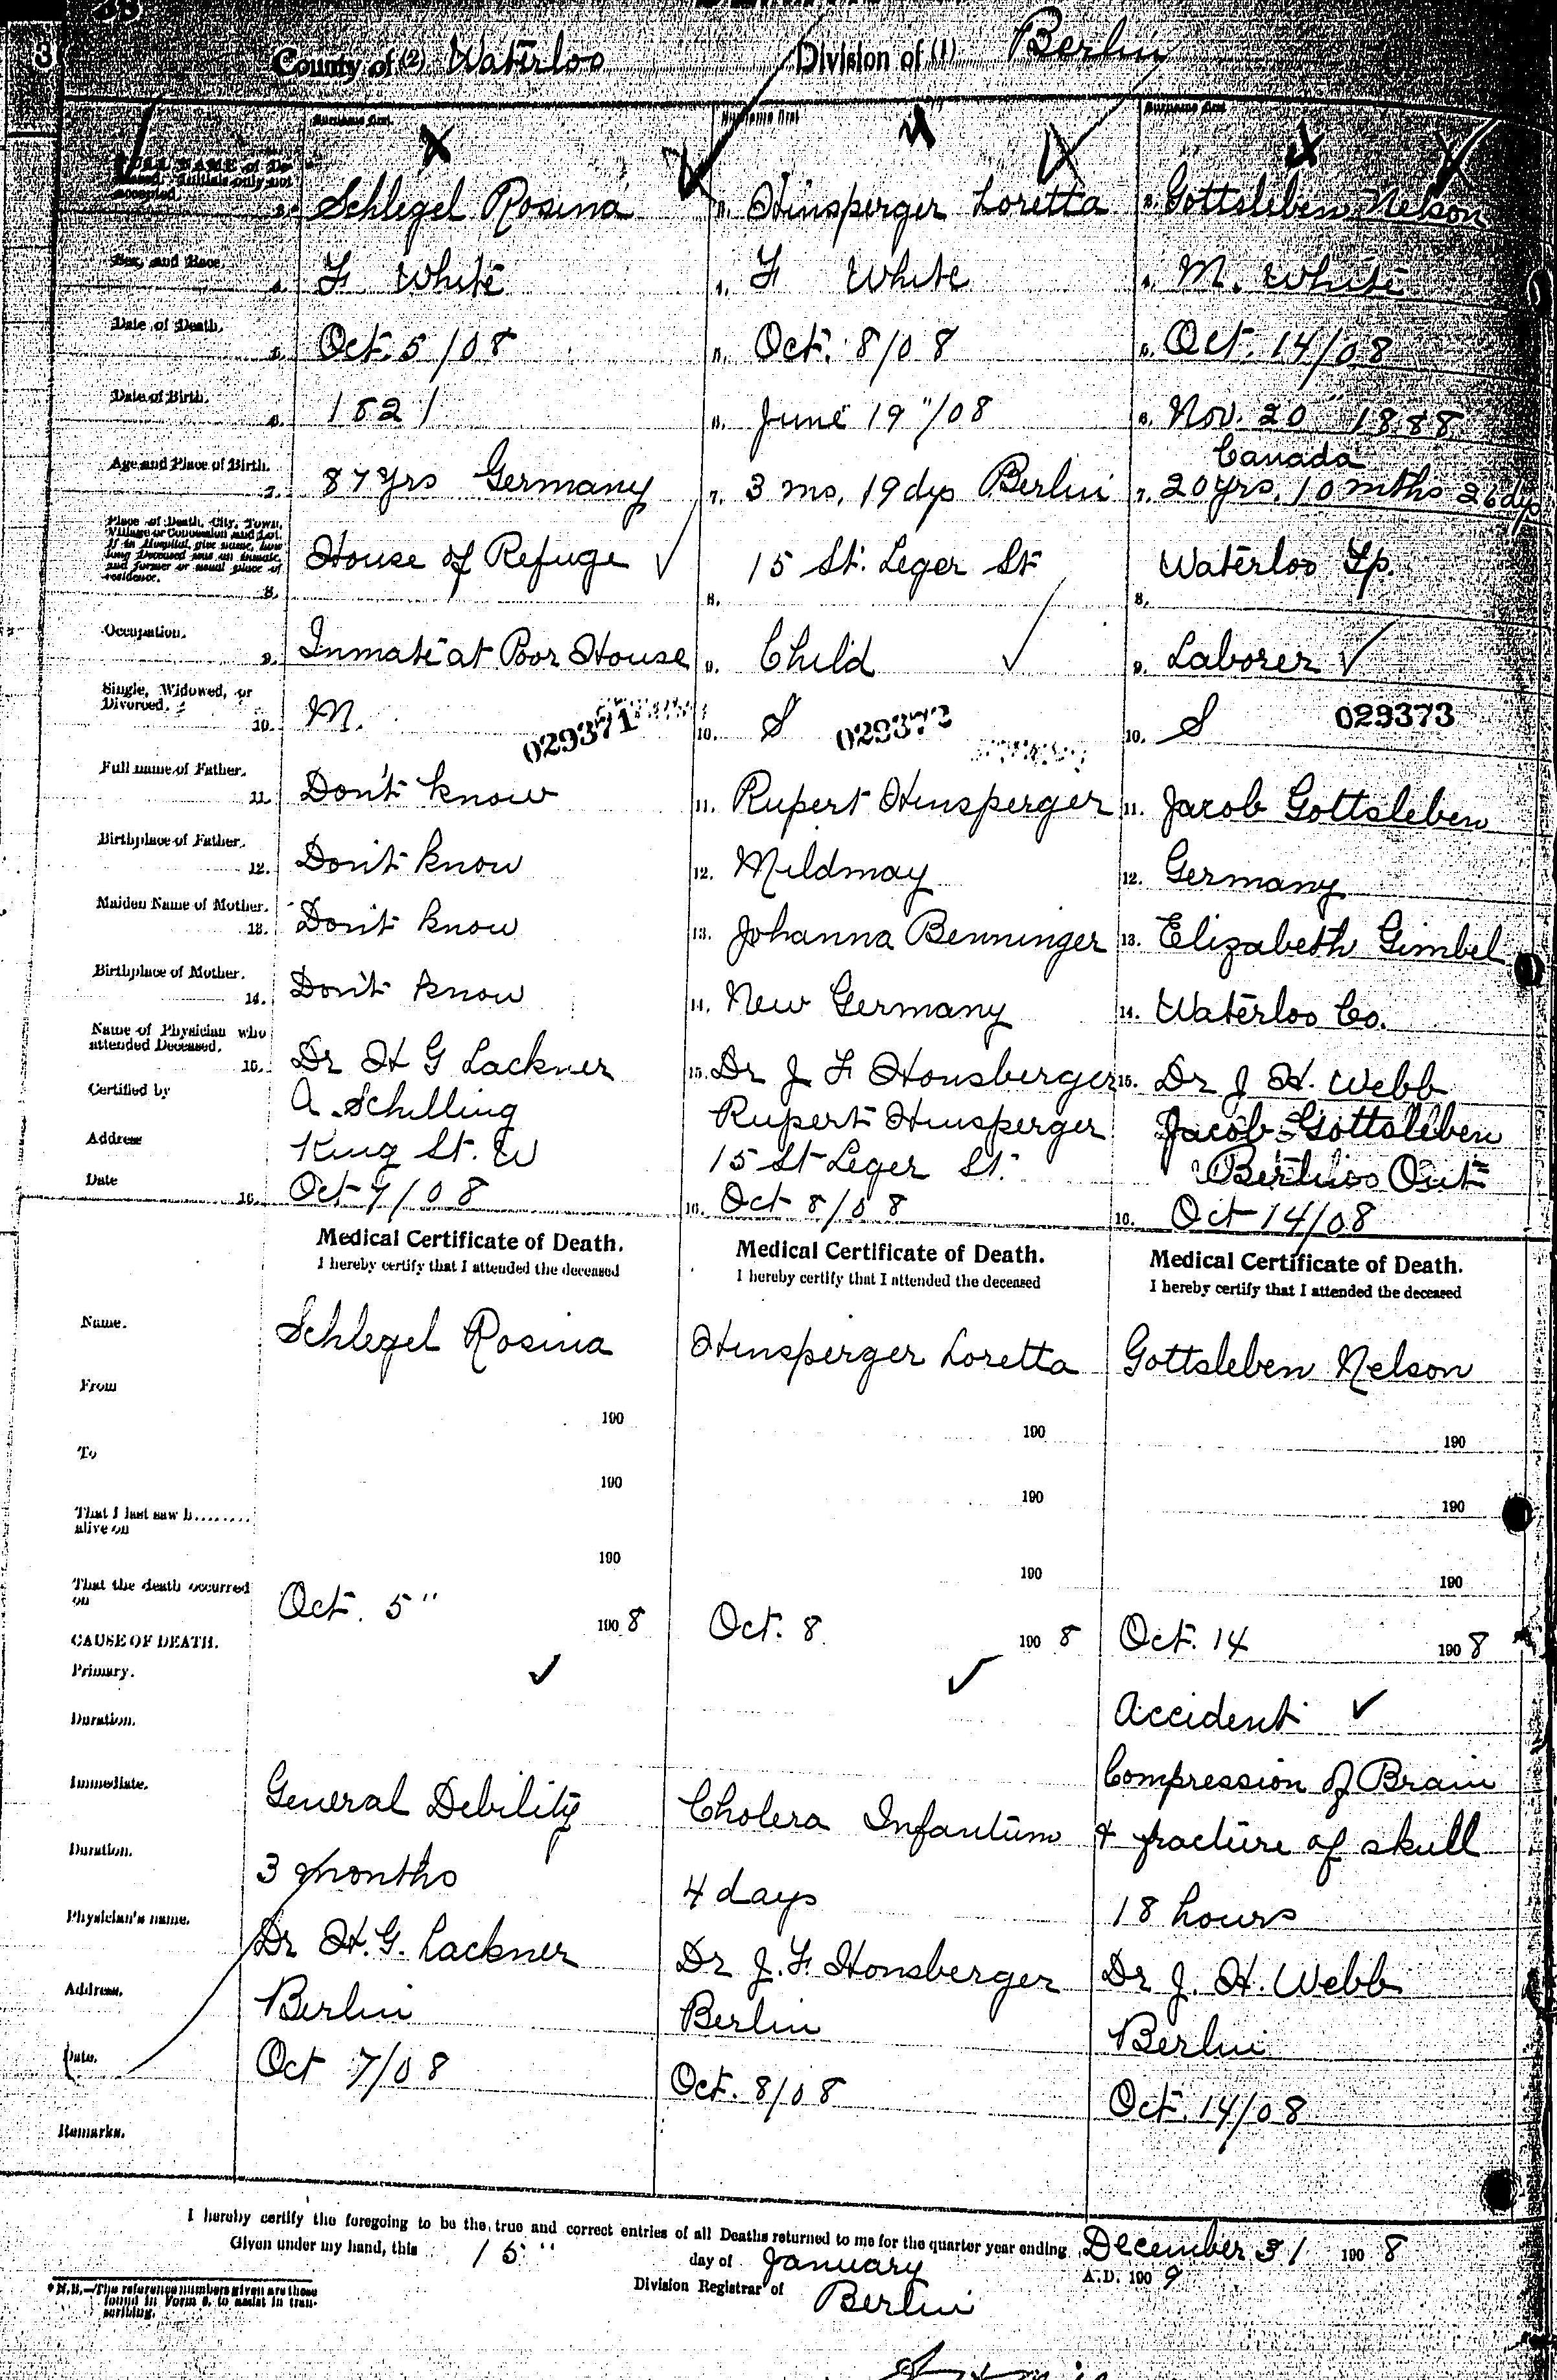 38
3
County of (2) Waterloo Division of (1) Berlin
Surname first. Surname first Surname first
FULL NAME of De-
ceased. Initials only not
accepted.
3. Schlegel Rosina 3. Hinsperger Loretta 3. Gottsleben Nelson
Sex, and Race. 4. F White 4. F White 4. M. White
Date of Death. 5. Oct. 5/08 5. Oct. 8/08 5. Oct. 14/08
Date of Birth. 6. 1821 6. June 19"/08 6. Nov. 20" 1888
Canada
Age and Place of Birth. 7. 87 yrs Germany 7. 3 mo, 19 dys Berlin 7. 20 yrs. 10 mths 26 dys
Place of Death, City, Town,
Village or Concession and Lot.
If in Hospital, give name, how
long Deceased was an inmate,
and former or usual place of
residence.
8. House of Refuge 8. 15 St. Leger St 8. Waterloo Tp.
Occupation. 9. Inmate at Poor House 9. Child 9. Laborer
Single, Widowed, or
Divorced. 10. M. 029371 10. S 029372 10. S 029373
Full name of Father. 11. Don't know 11. Rupert Hinsperger 11. Jacob Gottsleben
Birthplace of Father. 12. Don't know 12. Mildmay 12. Germany
Maiden Name of Mother. 13. Don't know 13. Johanna Benninger 13. Elizabeth Gimbel
Birthplace of Mother. 14. Don't know 14. New Germany 14. Waterloo Co.
Name of Physician who
attended Deceased. 15. Dr H G Lackner 15. Dr J F Honsberger 15. Dr J H. Webb
Certified by A. Schilling Rupert Hinsperger Jacob Gottsleben
Address King St. W 15 St Leger St. Ont
Date 16. Oct 7/08 16. Oct 8/08 16. Oct 14/08
Medical Certificate of Death. Medical Certificate of Death. Medical Certificate of Death.
I hereby certify that I attended the deceased I hereby certify that I attended the deceased I hereby certify that I attended the deceased
Name. Schlegel Rosina Hinsperger Loretta Gottsleben Nelson
From 190 190 190
To 190 190 190
That I last saw h........
alive on 190 190 190
That the death occurred
on Oct. 5" 190 8 Oct. 8 190 8 Oct. 14 190 8
CAUSE OF DEATH.
Primary. Accident
Duration.
Immediate. General Debility Cholera Infantum Compression of Brain
& fracture of skull
Duration. 3 months 4 days 18 hours
Physician's name. Dr H. G. Lackner Dr J. F. Honsberger Dr J. H. Webb
Address. Berlin Berlin Berlin
Date. Oct 7/08 Oct. 8/08 Oct. 14/08
Remarks.
I hereby certify the foregoing to be the true and correct entries of all Deaths returned to me for the quarter year ending December 31 190 8
Given under my hand, this 15" day of January A.D. 190 9
Division Registrar of Berlin
* N.B.—The reference numbers given are those
found in Form 6, to assist in tran-
scribing.